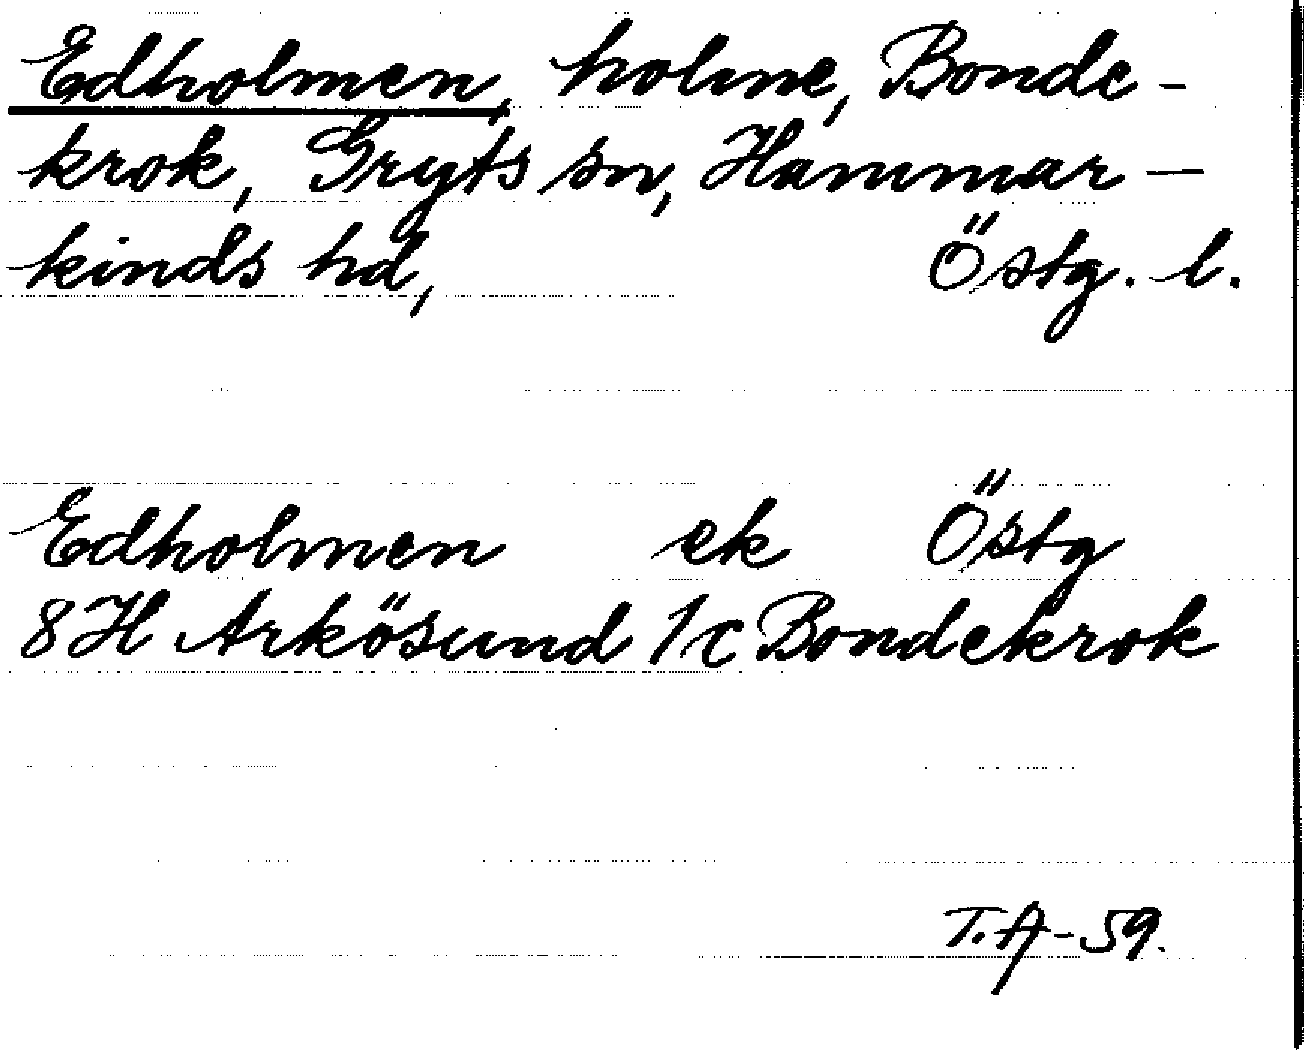 Edholmen, holme, Bonde-
krok, Gryts sn, Hammar-
kinds hd, Östg. l.
Edholmen ek Östg
8H Arkösund 1c Bondekrok
T.A-59.